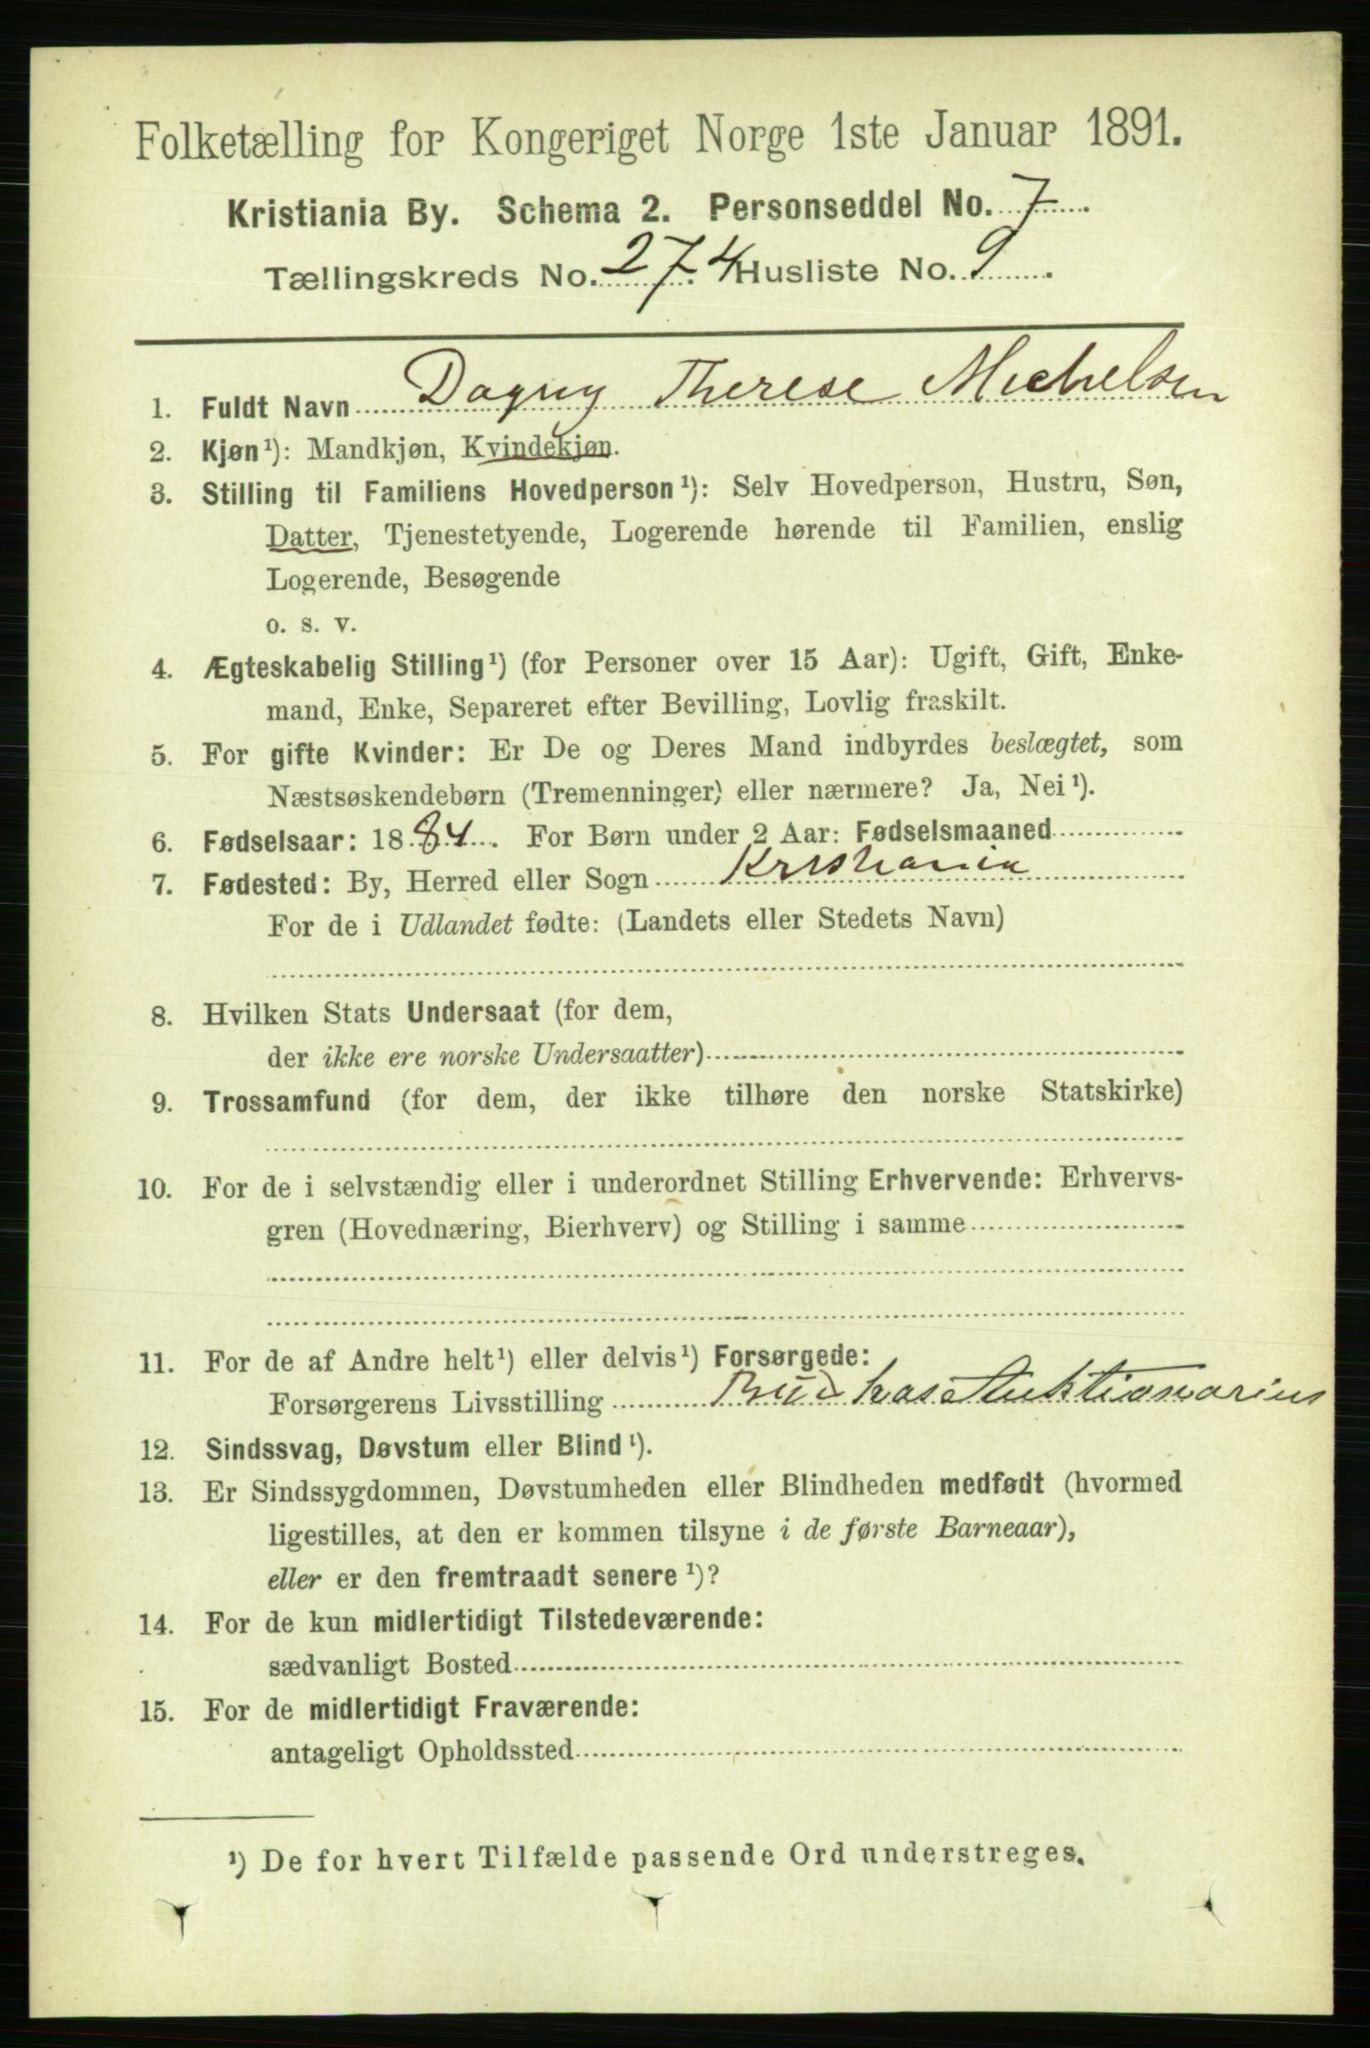 Folketælling for Kongeriget Norge 1ste Januar 1891.
Kristiania By. Schema 2. Personseddel No. 7.
Tællingskreds No. 274. Husliste No. 9.
1. Fuldt Navn Dagny Therese Michelsen
2. Kjøn¹): Mandkjøn, Kvindekjøn.
3. Stilling til Familiens Hovedperson¹): Selv Hovedperson, Hustru, Søn,
Datter, Tjenestetyende, Logerende hørende til Familien, enslig
Logerende, Besøgende
o. s. v.
4. Ægteskabelig Stilling¹) (for Personer over 15 Aar): Ugift, Gift, Enke-
mand, Enke, Separeret efter Bevilling, Lovlig fraskilt.
5. For gifte Kvinder: Er De og Deres Mand indbyrdes beslægtet, som
Næstsøskendebørn (Tremenninger) eller nærmere? Ja, Nei¹).
6. Fødselsaar: 1884. For Børn under 2 Aar: Fødselsmaaned
7. Fødested: By, Herred eller Sogn Kristiania
For de i Udlandet fødte: (Landets eller Stedets Navn)
8. Hvilken Stats Undersaat (for dem,
der ikke ere norske Undersaatter)
9. Trossamfund (for dem, der ikke tilhøre den norske Statskirke)
10. For de i selvstændig eller i underordnet Stilling Erhvervende: Erhvervs-
gren (Hovednæring, Bierhverv) og Stilling i samme
11. For de af Andre helt¹) eller delvis¹) Forsørgede:
Forsørgerens Livsstilling Bud hos Auktionarius
12. Sindssvag, Døvstum eller Blind¹).
13. Er Sindssygdommen, Døvstumheden eller Blindheden medfødt (hvormed
ligestilles, at den er kommen tilsyne i de første Barneaar),
eller er den fremtraadt senere¹)?
14. For de kun midlertidigt Tilstedeværende:
sædvanligt Bosted
15. For de midlertidigt Fraværende:
antageligt Opholdssted
¹) De for hvert Tilfælde passende Ord understreges.